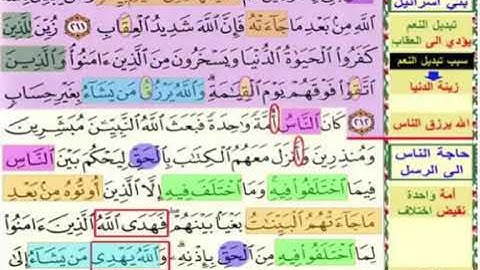 ٱللَّهِ مِنۢ بَعْدِ مَا جَآءَتْهُ فَإِنَّ ٱللَّهَ شَدِيدُ ٱلْعِقَابِ ٢١١ زُيِّنَ لِلَّذِينَ
كَفَرُوا۟ ٱلْحَيَوٰةُ ٱلدُّنْيَا وَيَسْخَرُونَ مِنَ ٱلَّذِينَ ءَامَنُوا۟ وَٱلَّذِينَ
ٱتَّقَوْا۟ فَوْقَهُمْ يَوْمَ ٱلْقِيَٰمَةِ وَٱللَّهُ يَرْزُقُ مَن يَشَآءُ بِغَيْرِ حِسَابٍ
٢١٢ كَانَ ٱلنَّاسُ أُمَّةً وَٰحِدَةً فَبَعَثَ ٱللَّهُ ٱلنَّبِيِّـۧنَ مُبَشِّرِينَ
وَمُنذِرِينَ وَأَنزَلَ مَعَهُمُ ٱلْكِتَٰبَ بِٱلْحَقِّ لِيَحْكُمَ بَيْنَ ٱلنَّاسِ
فِيمَا ٱخْتَلَفُوا۟ فِيهِ وَمَا ٱخْتَلَفَ فِيهِ إِلَّا ٱلَّذِينَ أُوتُوهُ مِنۢ بَعْدِ
مَا جَآءَتْهُمُ ٱلْبَيِّنَٰتُ بَغْيًۢا بَيْنَهُمْ فَهَدَى ٱللَّهُ ٱلَّذِينَ ءَامَنُوا۟
لِمَا ٱخْتَلَفُوا۟ فِيهِ مِنَ ٱلْحَقِّ بِإِذْنِهِۦ وَٱللَّهُ يَهْدِى مَن يَشَآءُ إِلَىٰ
بني اسرائيل
تبديل النعم
يؤدي الى العقاب
سبب تبديل النعم
زينة الدنيا
الله يرزق الناس
حاجة الناس
الى الرسل
أمة واحدة
نقيض اختلاف